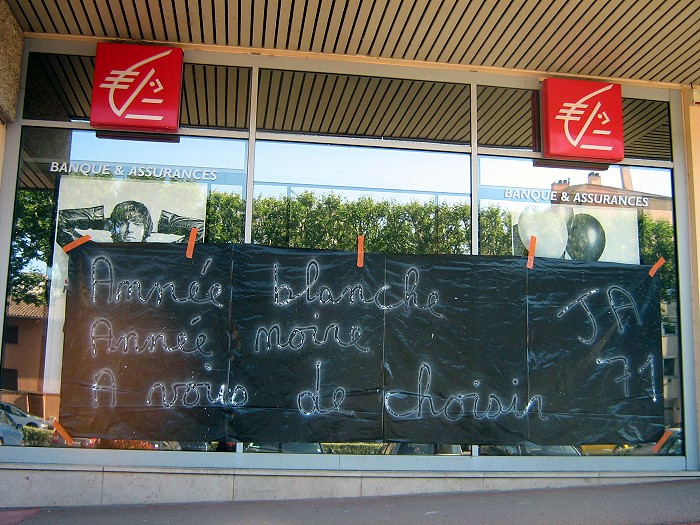 BANQUE & ASSURANCES
BANQUE & ASSURANCES
Année blanche
Année noire
A vous de choisir
JA
71